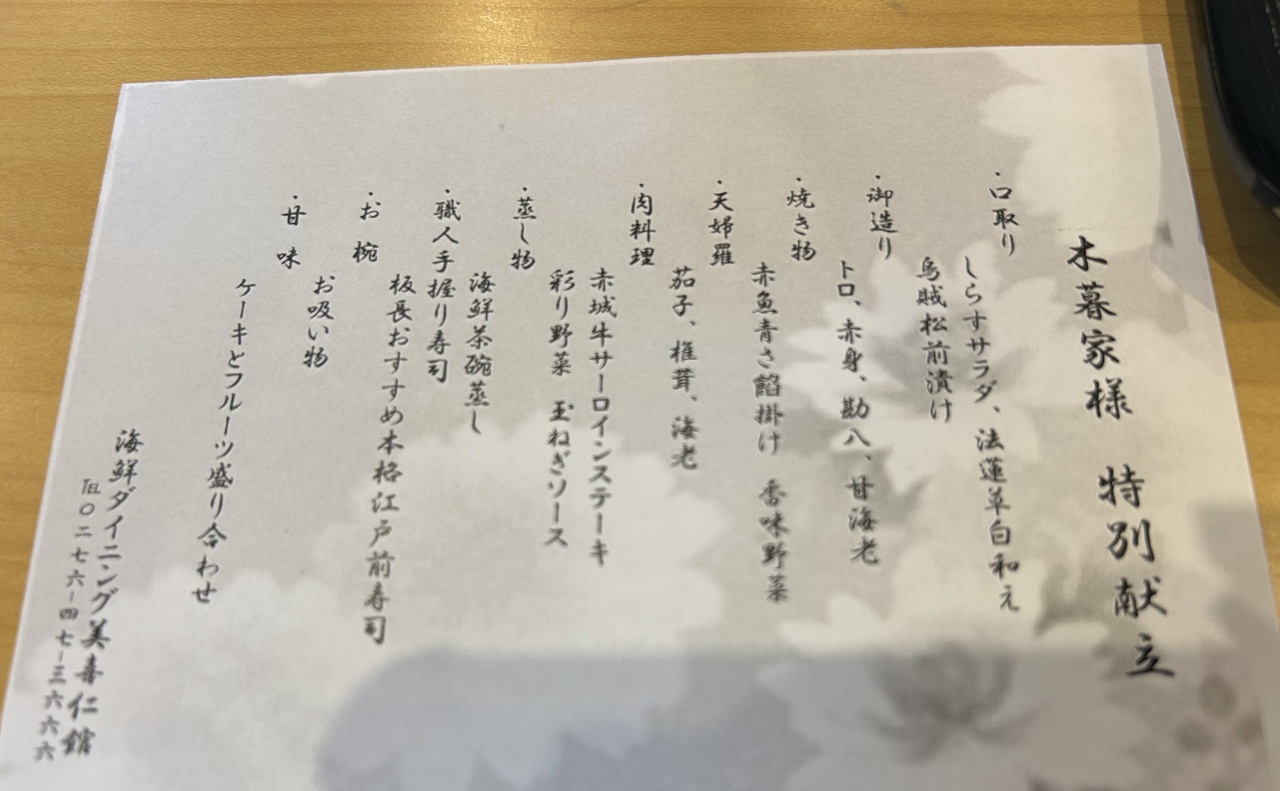 木暮家様　特別献立
・口取り
しらすサラダ、法蓮草白和え
烏賊松前漬け
・御造り
トロ、赤身、勘八、甘海老
・焼き物
赤魚青さ餡掛け　香味野菜
・天婦羅
茄子、椎茸、海老
・肉料理
赤城牛サーロインステーキ
彩り野菜　玉ねぎソース
・蒸し物
海鮮茶碗蒸し
・職人手握り寿司
板長おすすめ本格江戸前寿司
・お椀
お吸い物
・甘味
ケーキとフルーツ盛り合わせ
海鮮ダイニング美喜仁館
℡〇二七六-四七-三六六六